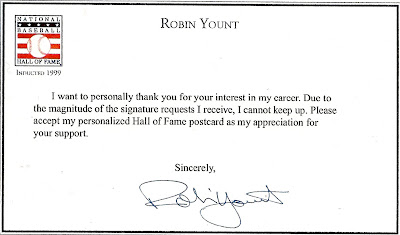 NATIONAL
BASEBALL
HALL OF FAME
INDUCTED 1999
ROBIN YOUNT
I want to personally thank you for your interest in my career. Due to
the magnitude of the signature requests I receive, I cannot keep up. Please
accept my personalized Hall of Fame postcard as my appreciation for
your support.
Sincerely,
Robin Yount